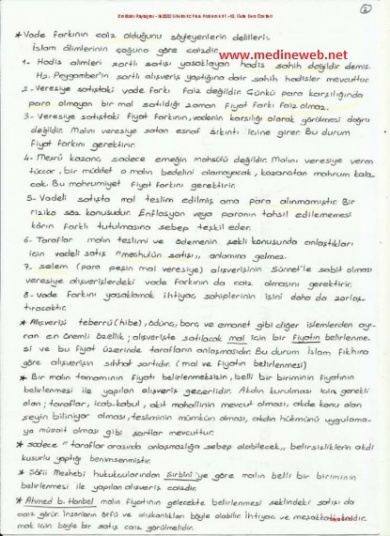 ②
www.medineweb.net
* Vade farkının caiz olduğunu söyleyenlerin delilleri:
İslam âlimlerinin çoğuna göre caizdir.
1- Hadis alimleri şartlı satışı yasaklayan hadis sahih değildir demiş.
Hz. Peygamber'in şartlı alışveriş yaptığına dair sahih hadisler mevcuttur.
2- Veresiye satıştaki vade farkı faiz değildir. Çünkü para karşılığında
para olmayan bir mal satıldığı zaman fiyat farkı faiz olmaz.
3- Veresiye satıştaki fiyat farkının, vadenin karşılığı olarak görülmesi doğru
değildir. Malını veresiye satan esnaf sıkıntı içine girer. Bu durum
fiyat farkını gerektirir.
4- Meşru kazanç sadece emeğin mahsülü değildir. Malını veresiye veren
tüccar, bir müddet o malın bedelini alamayacak, kazanctan mahrum kala-
cak. Bu mahrumiyet fiyat farkını gerektirir.
5- Vadeli satışta mal teslim edilmiş ama para alınmamıştır. Bir
riziko söz konusudur. Enflasyon veya paranın tahsil edilememesi
kârın farklı tutulmasına sebep teşkil eder.
6- Taraflar malın teslimi ve ödemenin şekli konusunda anlaştıkları
için vadeli satış "meçhulün satışı" anlamına gelmez.
7- selem (para peşin mal veresiye) alışverişinin Sünnet'le sabit olması
veresiye alışverişlerdeki vade farkının da caiz olmasını gerektirir.
8- Vade farkını yasaklamak ihtiyaç sahiplerinin işini daha da zorlaş-
tıracaktır.
* Alışverişi teberrû (hibe), ödünç, borç ve emanet gibi diğer işlemlerden ayı-
ran en önemli özellik; alışverişte satılacak mal için bir fiyatın belirlenme-
si ve bu fiyat üzerinde tarafların anlaşmasıdır. Bu durum İslam fıkhına
göre alışverişin sıhhat şartıdır. (mal ve fiyatın belirlenmesi)
* Bir malın tamamının fiyatı belirlenmeksizin, belli bir biriminin fiyatının
belirlenmesi ile yapılan alışveriş geçerlidir. Akdin kurulması için gerekli
olan; taraflar, icab-kabul, akit mahallinin mevcut olması, akde konu olan
şeyin biliniyor olması, tesliminin mümkün olması, akdin hükmünü uygulama-
ya müsait olması gibi şartlar mevcuttur.
* Sadece "taraflar arasında anlaşmazlığa sebep olabilecek" belirsizliklerin akdi
kusurlu yaptığı benimsenmiştir.
* Şâfii Mezhebi hukukçularından Şirbinî'ye göre malın belli bir biriminin
belirlenmesi ile yapılan alışveriş caizdir.
* Ahmed b. Hanbel malın fiyatının gelecekte belirlenmesi şeklindeki satışı da
caiz görür. İnsanların örfü ve alışkanlıkları böyle olabilir. İhtiyaç ve meşakkati kaldır-
mak için böyle bir satış caiz görülmelidir.